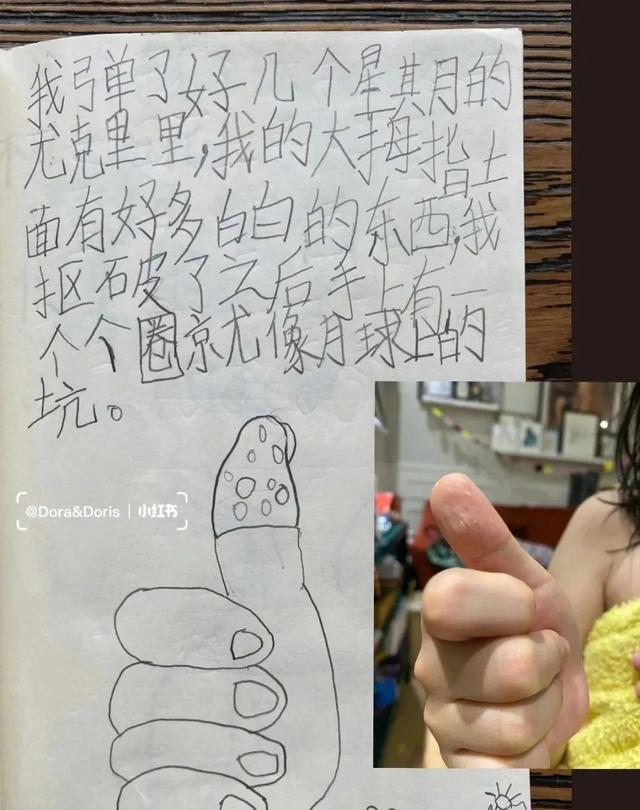 我弓单了好几个星其月的
尤克里里,我的大拇指上
面有好多白白的东西,我
抠破皮了之后手上有一
个个圈京尤像月球上的
坑。
@Dora&Doris | 小红书